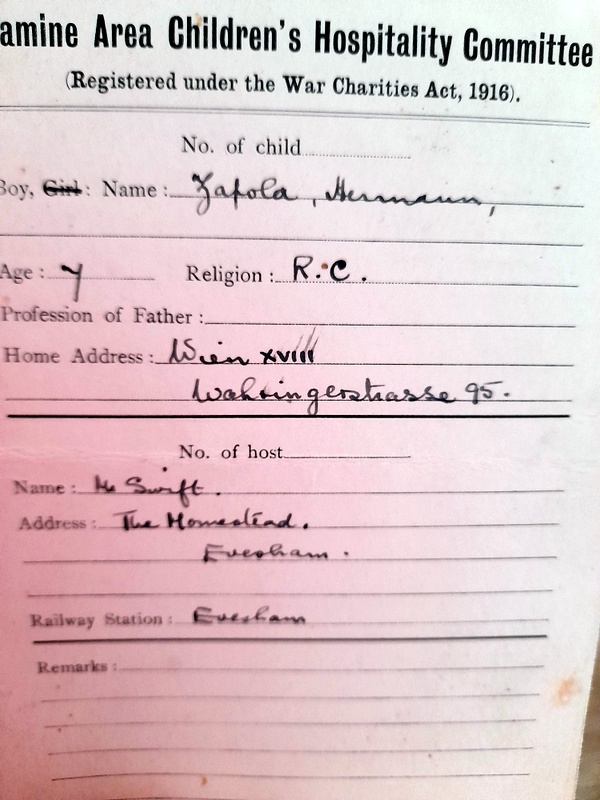 amine Area Children's Hospitality Committee
(Registered under the War Charities Act, 1916).
No. of child
Boy, Girl: Name: Zapola, Hermann,
Age: 7 Religion: R.C.
Profession of Father:
Home Address: Wien XVIII
Wahringerstrasse 95.
No. of host
Name: Mr Swift.
Address: The Homestead.
Evesham.
Railway Station: Evesham
Remarks: